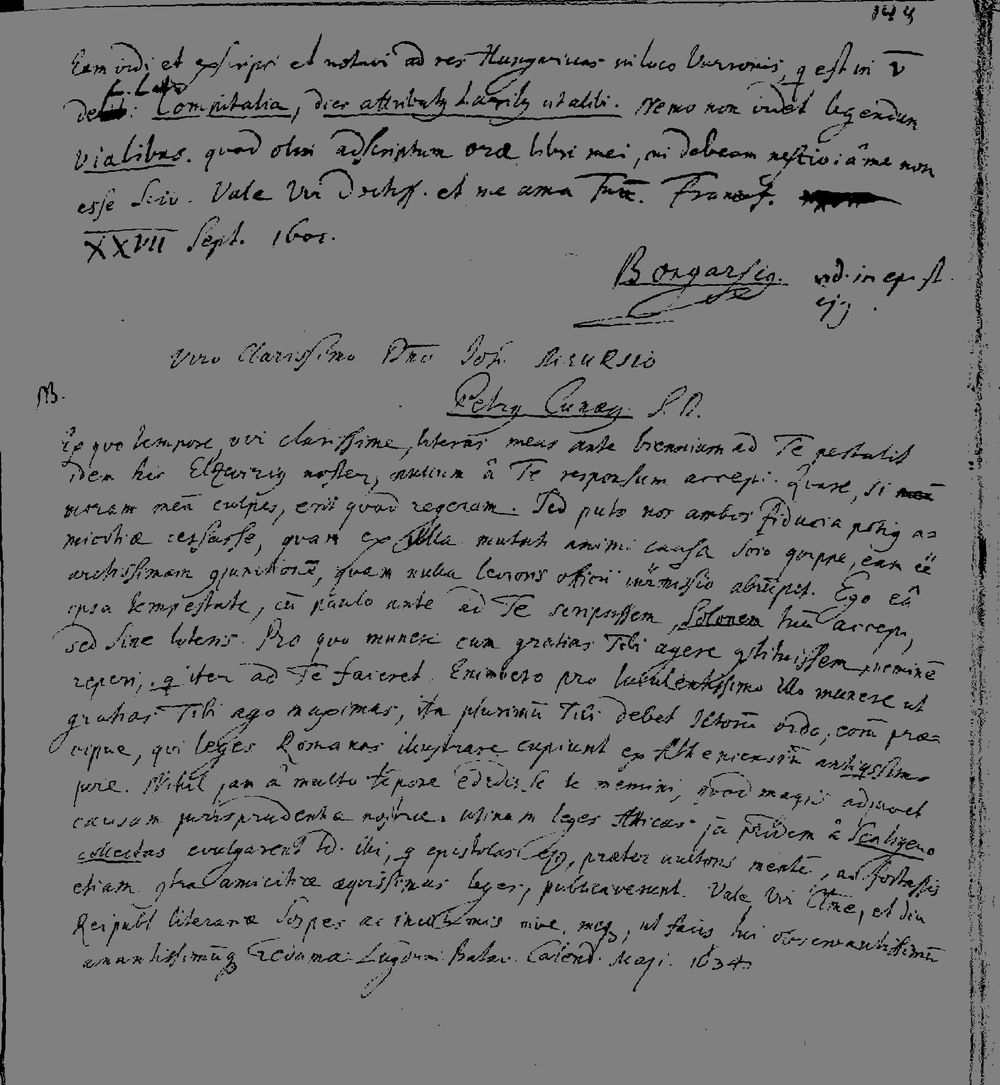 144
Eam vidi et exscripsi et notavi ad res Hungaricas in loco Varronis, q est in V
de L. Lat: Compitalia, dies attributq Laribq vitalibq. Nemo non videt legendum
Vialibus. quod olim adscriptum oræ libri mei, ni debeam nescio â me non
esse scio. Vale Vir Doctiss. et me ama Tuū. Francf.
XXVII Sept. 1601.
Bongarsiq. vid. in epist.
ejq.
Viro Clarissimo Dno Joh. MEURSIO
NB.
Petrq Cunæq. S. D.
Ex quo tempore, vir clarissime, literas meas ante biennium ad Te pertulit
idem hic Elzeviriq noster, nullum â Te responsum accepi. Quare, si
moram meā culpes, erit quod regeram. Sed puto nos ambos fiducia potiq a-
micitiæ cessasse, quam ex ulla mutati animi causa. Scio quippe, eam eē
arctissimam conjunctionē, quam nulla levioris officii intermissio abrūpet. Ego eâ
ipsa tempestate, cū paulo ante ad Te scripsissem, Solonem tuū accepi,
sed sine literis. Pro quo munere cum gratias Tibi agere constituissem neminē
reperi, q iter ad Te faceret. Enimvero pro luculentissimo illo munere ut
gratias Tibi ago maximas, ita plurimū Tibi debet Ictorū ordo, eorū præ-
cipue, qui leges Romanas illustrare cupiunt ex Atheniensiū antiqissimo
jure. Nihil jam â multo tēpore edidisse te memini, quod magis adjuvet
causam jurisprudentiæ nostræ. Utinam leges Atticas jā pridem â Scaligero
collectas evulgarent illi, q epistolas ejq, præter auctoris mentē, ac fortassis
etiam contra amicitiæ æquissimas leges, publicaverunt. Vale, Vir Clme, et diu
Reipubl literariæ sospes ac incolumis vive, meq, ut facis, tui observantissimū
amantissimūq redama. Lugduni Batav. Calend. Maji. 1634.